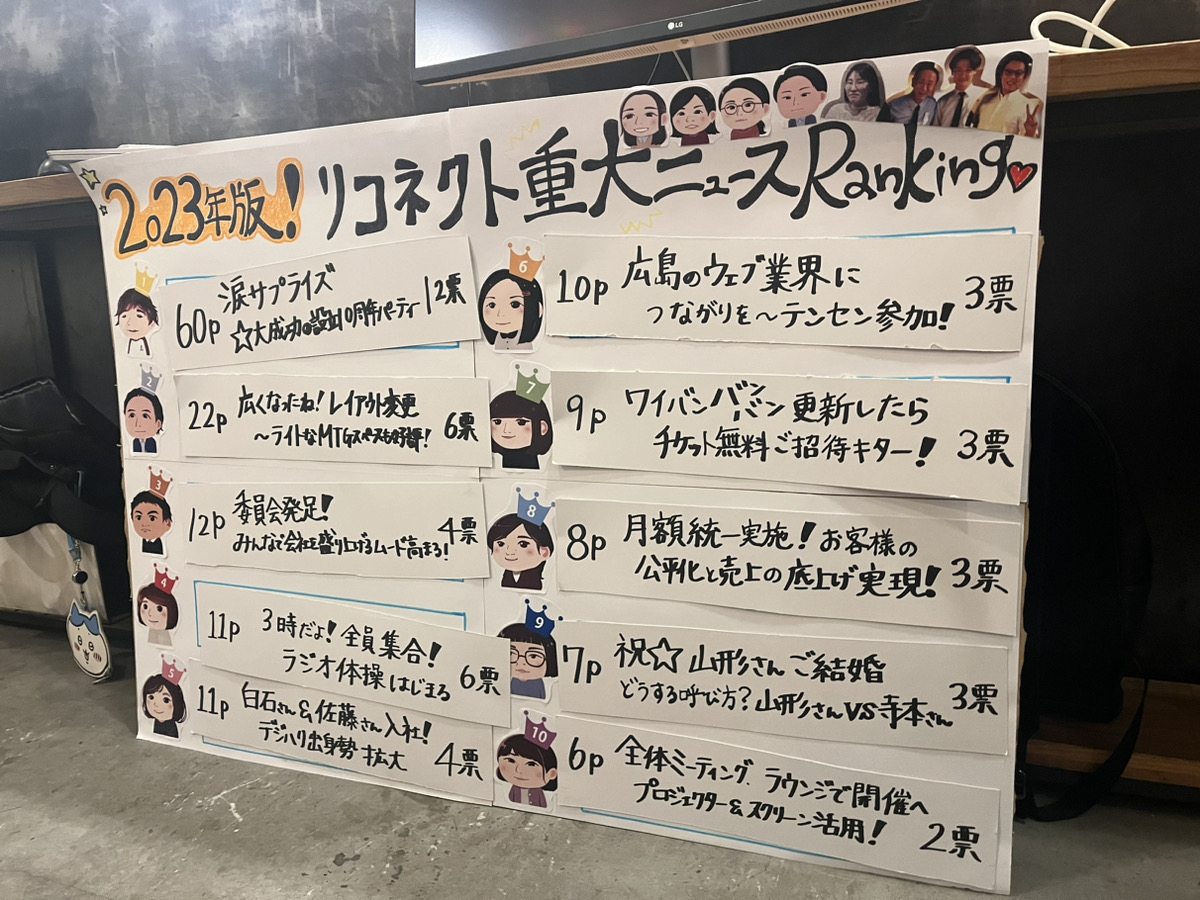 LG
2023年版! リコネクト重大ニュースRanking
1
60p 涙サプライズ
☆大成功の設立10周年パーティ 12票
2
22p 広くなったね!レイアウト変更
〜ライトなMTGスペースも好評! 6票
3
12p 委員会発足!
みんなで会社を盛り上げるムード高まる! 4票
4
11p 3時だよ!全員集合!
ラジオ体操はじまる 6票
5
11p 白石さん&佐藤さん入社!
デジハリ出身勢 拡大 4票
6
10p 広島のウェブ業界に
つながりを〜テンセン参加! 3票
7
9p ワイバンバンバン更新したら
チケット無料ご招待キター! 3票
8
8p 月額統一実施!お客様の
公平化と売上の底上げ実現! 3票
9
7p 祝☆山形さんご結婚
どうする呼び方?山形さんVS寺本さん 3票
10
6p 全体ミーティング、ラウンジで開催へ
プロジェクター&スクリーン活用! 2票